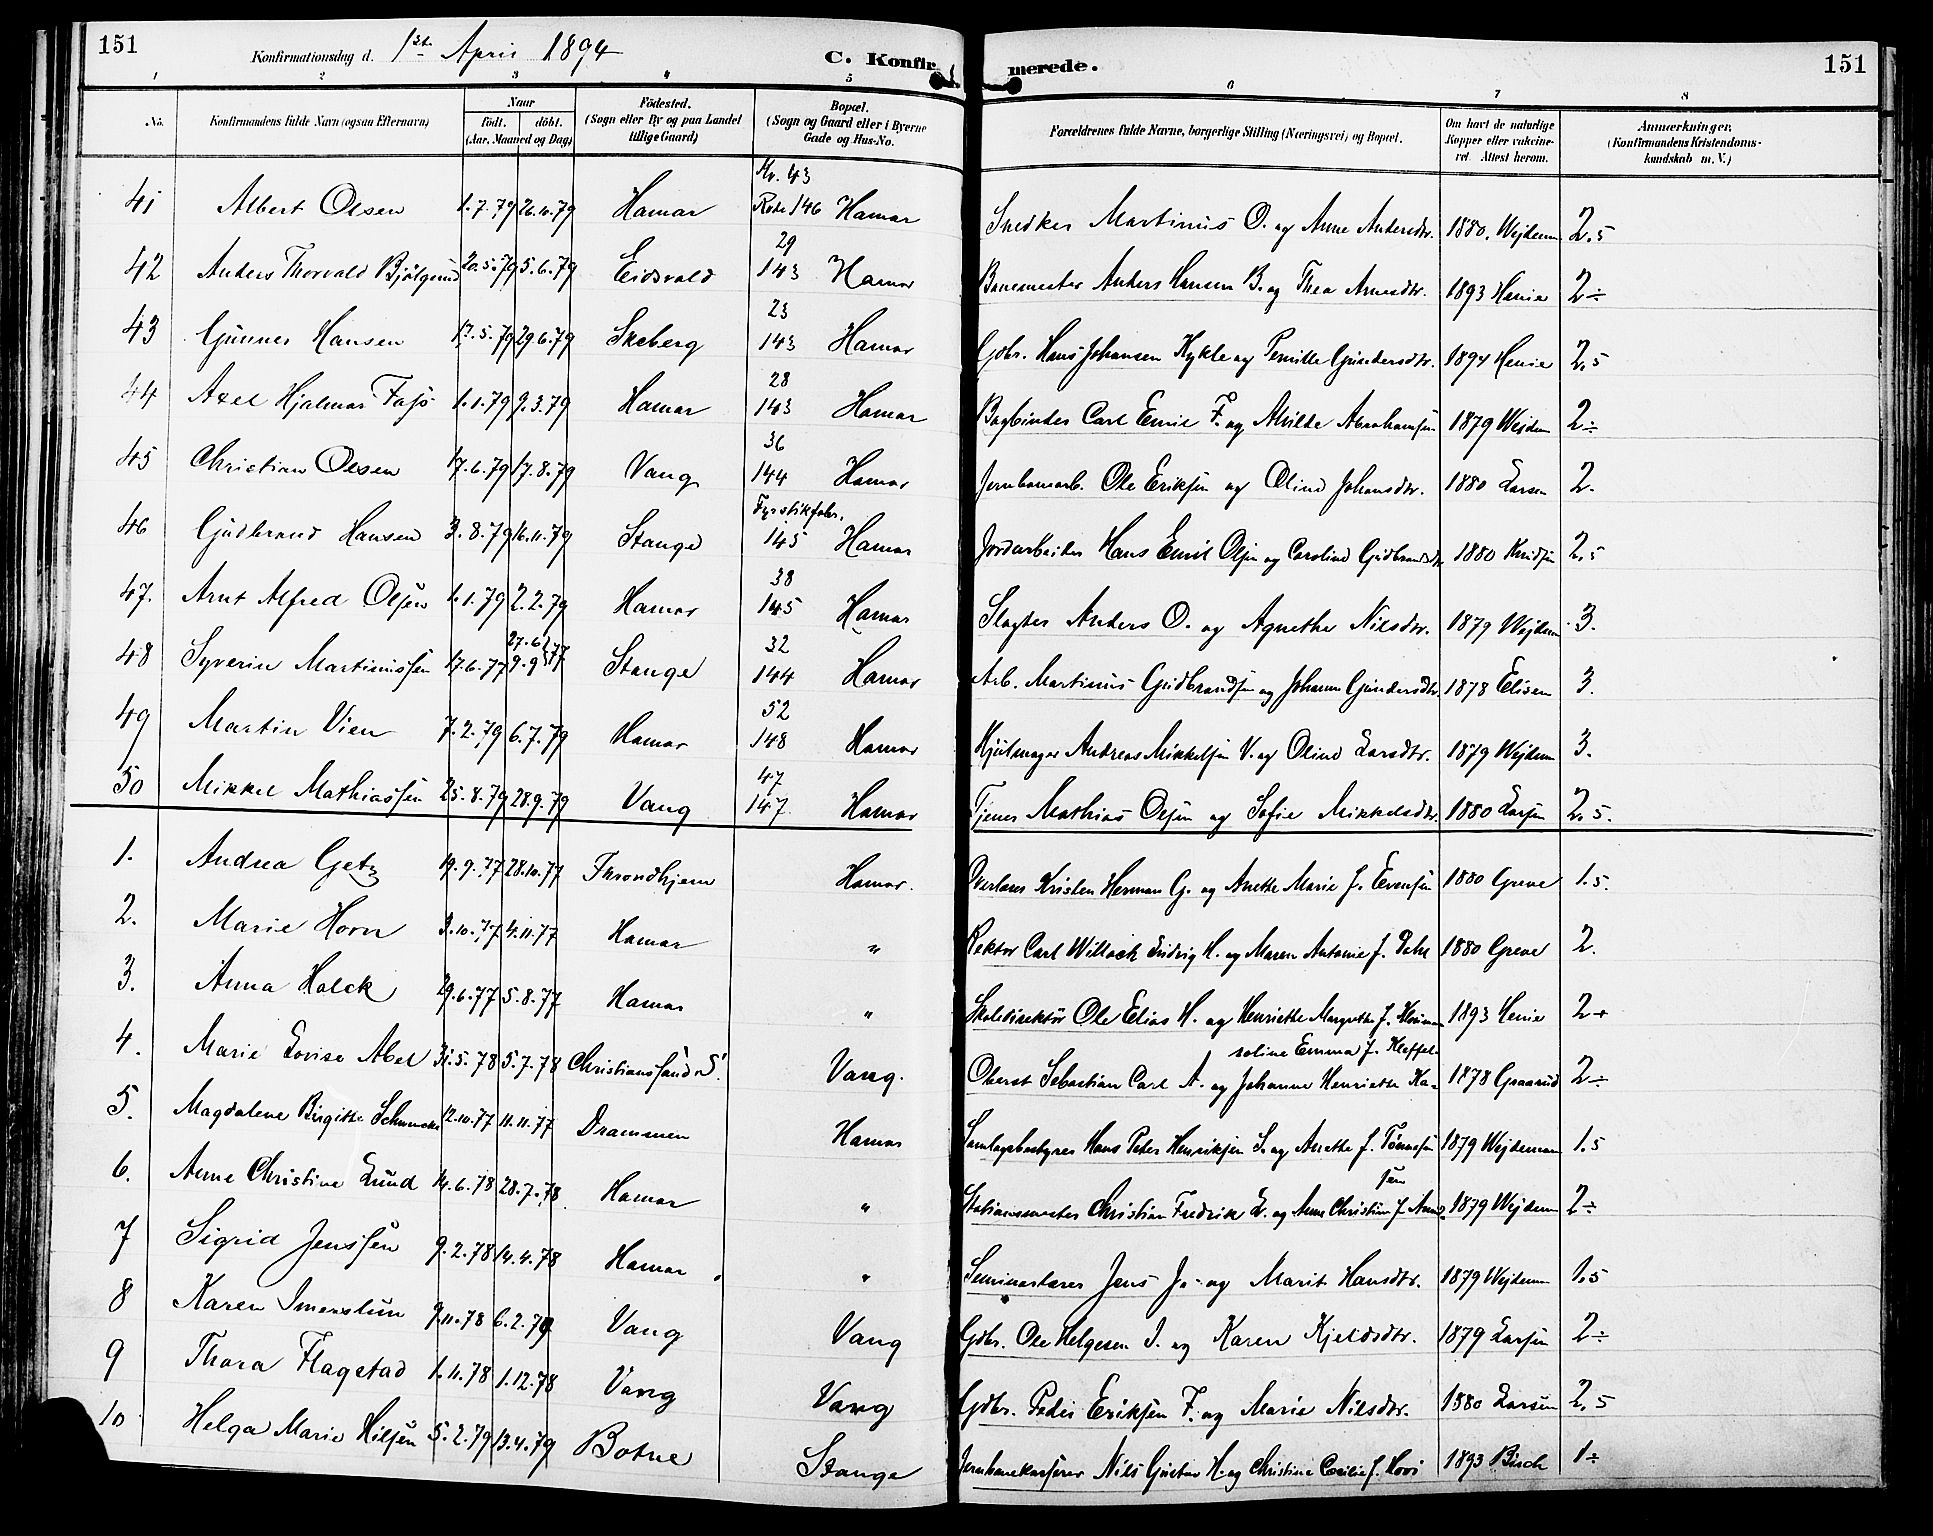 151
Konfirmationsdag d. 1ste April 1894
C. Konfirmerede.
151
1 2 3 4 5 6 7 8
No.
Konfirmandens fulde Navn (ogsaa Efternavn)
Naar
Födt. döbt.
(Aar, Maaned og Dag)
Födested.
(Sogn eller By og paa Landet tillige Gaard)
Bopæl.
(Sogn og Gaard eller i Byerne Gade og Hus-No.
Forældrenes fulde Navne, borgerlige Stilling (Næringsvei) og Bopæl.
Om havt de naturlige Kopper eller vaccineret. Attest herom.
Anmærkninger.
(Konfirmandens Kristendomskundskab m. V.)
41 Albert Olsen 1.7.79 26.10.79 Hamar Nr. 43 Rode 146 Hamar Snedker Martinus O. og Anne Andersdtr. 1880. Wejdem 2,5
42 Anders Thorvald 20.5.79 5.6.79 Eidsvold 29 143 Hamar Banemester Anders Hansen B. og Thea Arnesdtr. 1893 Henie 2÷
43 Gunner Hansen 17.5.79 29.6.79 Skeberg 23 143 Hamar Gdbr. Hans Johansen Kykle og Pernille Gundersdtr. 1894 Henie 2,5
44 Axel Hjalmar 1.1.79 9.3.79 Hamar 28 143 Hamar Bogbinder Carl Emil F. og Alvilde Abrahamsen 1879 Wejdem 2÷
45 Christian Olsen 17.6.79 17.8.79 Vang 36 144 Hamar Jernbanearb. Ole Eriksen og Oline Johansdtr. 1880 Larsen 2.
46 Gudbrand Hansen 3.8.79 16.11.79 Stange Fyrstikfabr. 145 Hamar Jordarbeider Hans Emil Olsen og Caroline Gudbrandsdtr 1880 Knudsen 2,5
47. Arnt Alfred Olsen 1.1.79 2.2.79 Hamar 38 145 Hamar Slagter Anders O. og Agnethe Nilsdtr. 1879 Wejdem 3.
48 Syverin Martinussen 17.6.77 27.6 9.9 77 Stange 32 144 Hamar Arb. Martinus Gudbrandsen og Johanne Gundersdtr. 1878 Elisen 3.
49 Martin Vien 7.2.79 6.7.79 Hamar 52 148 Hamar Hjulmager Andreas Mikkelsen V. og Oline Larsdtr. 1879 Wejdem 3.
50 Mikkel Mathiassen 25.8.79 28.9.79 Vang 47 147. Hamar Tjener Mathias Olsen og Sofie Mikkelsdtr. 1880 Larsen 2,5.
1. Andrea Getz 19.9.77 28.10.77 Throndhjem Hamar. Overlærer Kristen Herman G. og Anethe Marie f. Evensen 1880 Greve 1.5.
2. Marie Horn 3.10.77 4.11.77 Hamar " Rektor Carl Willoch Ludvig H. og Maren Antonie f. Dahl 1880 Greve 2.
3. Anna Holck 29.6.77 5.8.77 Hamar " Skoledirektør Ole Elias H. og Henriette Margrethe f. 1893 Henie 2+
4. Marie Lovise Abel 31.5.78 5.7.78 Christianssand S. Vang. Oberst Sebastian Carl A. og Johanne Henriette Karoline Emma f. Kleffel 1878 Graarud 2÷
5. Magdalene Birgitte 12.10.77 11.11.77 Drammen Hamar Samlagsbestyrer Hans Peter Henriksen S. og Anethe f. Tønnesen 1879 Wejdeman 1.5
6. Anne Christine Lund 14.6.78 28.7.78 Hamar " Stationsmester Christian Fredrik L. og Anne Christine f. 1879 Wejdem 2÷
7 Sigrid Jenssen 9.2.78 14.4.78 Hamar " Seminarlærer Jens J. og Marit Hansdtr. 1879 Wejdem 1.5
8 Karen Imenslun 9.11.78 6.2.79 Vang Vang Gdbr. Ole Helgesen I. og Karen Kjeldsdtr. 1879 Larsen 2÷
9 Thora Flagstad 1.11.78 1.12.78 Vang Vang Gdbr. Peder Eriksen F. og Marie Nilsdtr. 1880 Larsen 2,5
10 Helga Marie Hilsen 5.2.79 13.4.79 Botne Stange Jernbanekasserer Nils Gustav H. og Christine Cecilie f. Hovi 1893 Birch 1÷